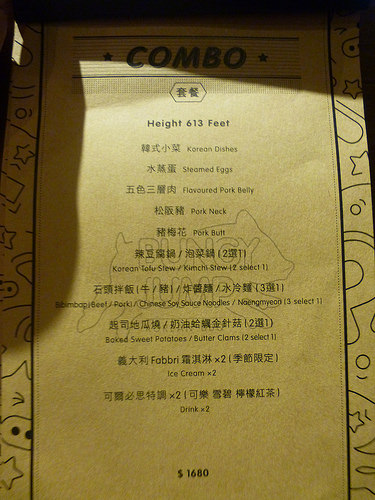 ★ COMBO ★
套餐
Height 613 Feet
韓式小菜 Korean Dishes
水蒸蛋 Steamed Eggs
五色三層肉 Flavoured Pork Belly
松阪豬 Pork Neck
豬梅花 Pork Butt
辣豆腐鍋 / 泡菜鍋 (2選1)
Korean Tofu Stew / Kimchi Stew (2 select 1)
石頭拌飯(牛 / 豬) / 炸醬麵 / 水冷麵 (3選1)
Bibimbap(Beef / Pork) / Chinese Soy Sauce Noodles / Naengmyeon (3 select 1)
起司地瓜燒 / 奶油蛤蠣金針菇 (2選1)
Baked Sweet Potatoes / Butter Clams (2 select 1)
義大利 Fabbri 霜淇淋 ×2 (季節限定)
Ice Cream ×2
可爾必思特調 ×2 (可樂 雪碧 檸檬紅茶)
Drink ×2
$ 1680